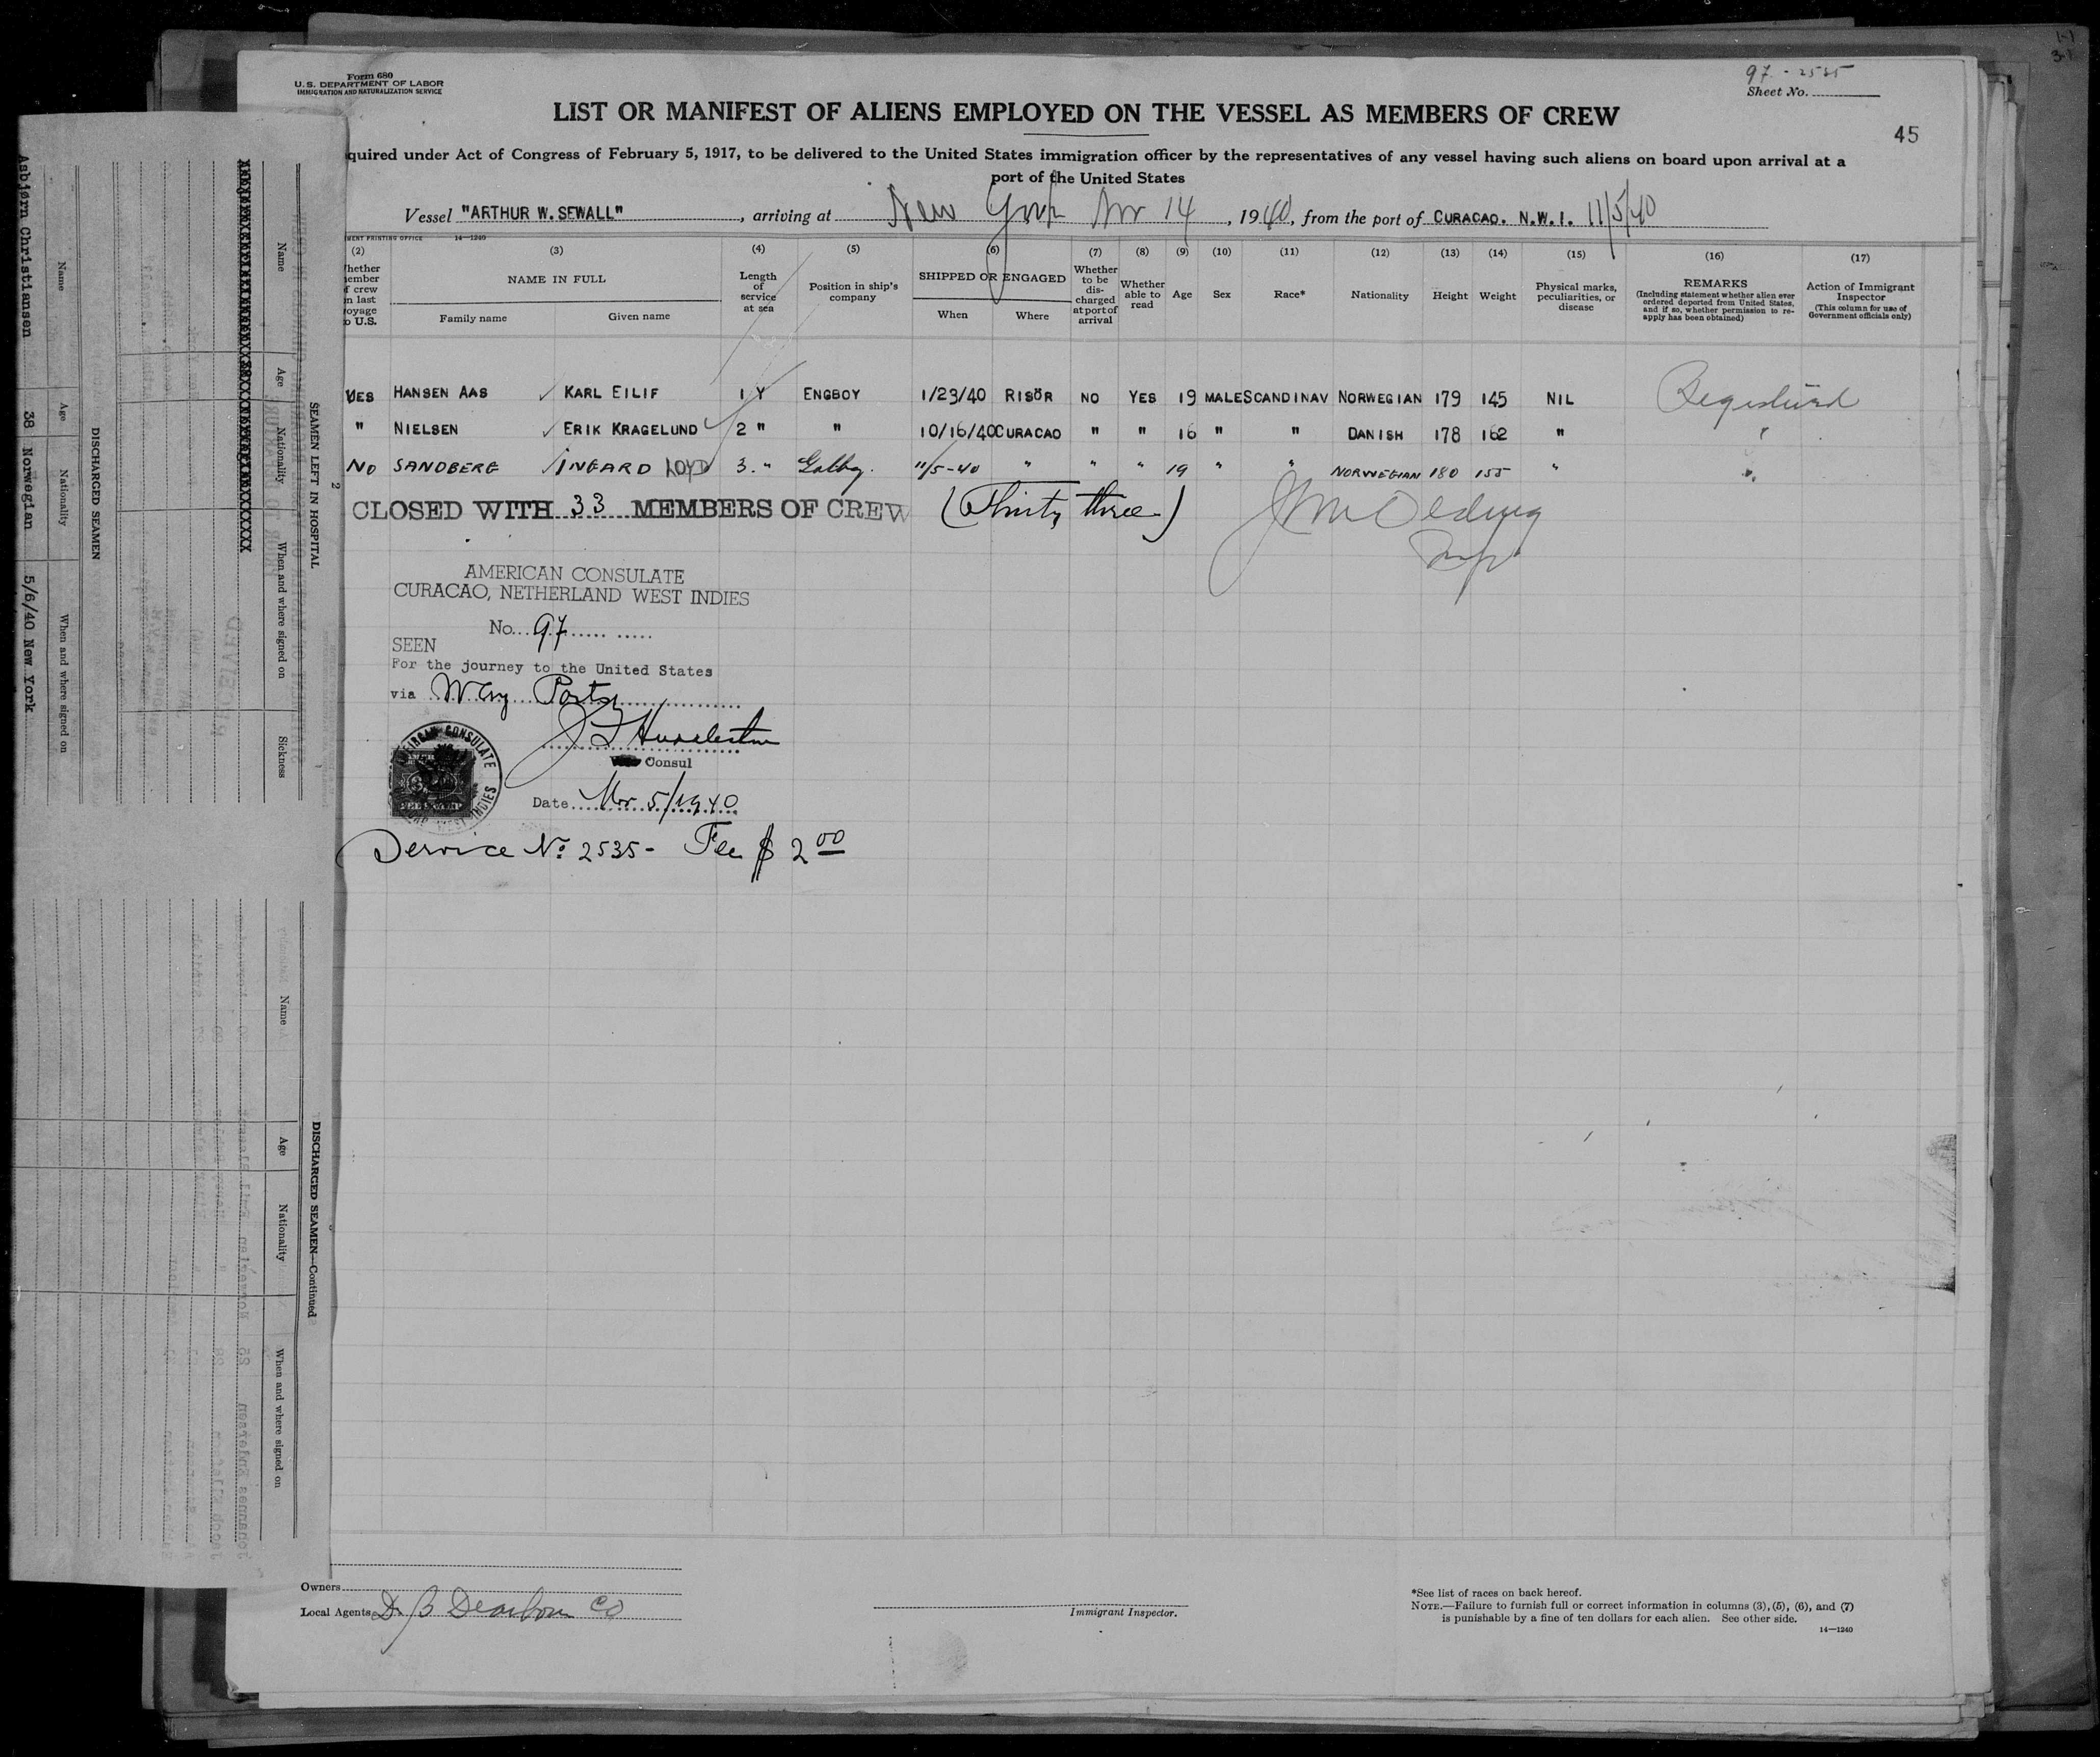 Form 680
U.S. DEPARTMENT OF LABOR
IMMIGRATION AND NATURALIZATION SERVICE
97 - 2535
Sheet No.
LIST OR MANIFEST OF ALIENS EMPLOYED ON THE VESSEL AS MEMBERS OF CREW
45
quired under Act of Congress of February 5, 1917, to be delivered to the United States immigration officer by the representatives of any vessel having such aliens on board upon arrival at a
port of the United States
Vessel "ARTHUR W. SEWALL", arriving at New York Nov 14, 1940, from the port of CURACAO. N.W.I. 11/5/40
MENT PRINTING OFFICE 14—1240
(2) (3) (4) (5) (6) (7) (8) (9) (10) (11) (12) (13) (14) (15) (16) (17)
hether ember f crew n last oyage o U.S.
NAME IN FULL
Family name Given name
Length of service at sea
Position in ship's company
SHIPPED OR ENGAGED
When Where
Whether to be discharged at port of arrival
Whether able to read
Age
Sex
Race*
Nationality
Height
Weight
Physical marks, peculiarities, or disease
REMARKS
(Including statement whether alien ever ordered deported from United States, and if so, whether permission to reapply has been obtained)
Action of Immigrant Inspector
(This column for use of Government officials only)
YES HANSEN AAS ✓ KARL EILIF 1 Y ENGBOY 1/23/40 RISÖR NO YES 19 MALE SCANDINAV NORWEGIAN 179 145 NIL
" NIELSEN ✓ ERIK KRAGELUND 2 " " 10/16/40 CURACAO " " 16 " " DANISH 178 162 "
NO SANDBERG ✓ INGARD LOYD 3. " Gallby. 11/5-40 " " " 19 " " NORWEGIAN 180 155 "
CLOSED WITH 33 MEMBERS OF CREW (Thirty three)
AMERICAN CONSULATE
CURACAO, NETHERLAND WEST INDIES
No. 97
SEEN
For the journey to the United States
via Way Ports
Consul
Date Nov 5/1940
Service No. 2535- Fee $ 2 00
Owners
Local Agents D. B Dearborn Co
Immigrant Inspector.
*See list of races on back hereof.
NOTE.—Failure to furnish full or correct information in columns (3), (5), (6), and (7)
is punishable by a fine of ten dollars for each alien. See other side.
14—1240
SEAMEN LEFT IN HOSPITAL
Name Age Nationality When and where signed on Sickness
2
DISCHARGED SEAMEN
Name Age Nationality When and where signed on
Asbjørn Christiansen 38 Norwegian 5/6/40 New York
DISCHARGED SEAMEN—Continued
Name Age Nationality When and where signed on